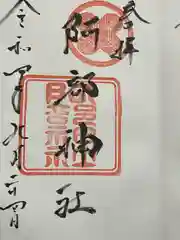 奉拝
阿部神社
令和四年九月二四日